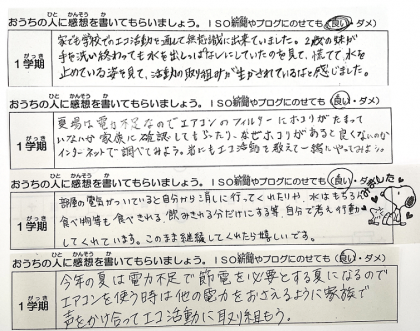 おうちの人に感想を書いてもらいましょう。ISO新聞やブログにのせても（良い・ダメ）
1学期
家でも学校でのエコ活動を通して無意識に出来ていました。2歳の妹が
手を洗い終わっても水を出しっぱなしにしていたのを見て、慌てて水を
止めている姿を見て、活動の取り組みが生かされているなと感じました。
おうちの人に感想を書いてもらいましょう。ISO新聞やブログにのせても（良い・ダメ）
1学期
夏場は電力不足なのでエアコンのフィルターにホコリがたまって
いないか家族に確認してもらったり、なぜホコリがあると良くないのか
インターネットで調べてみよう。弟にもエコ活動を教えて一緒にやってみよう。
おうちの人に感想を書いてもらいましょう。ISO新聞やブログにのせても（良い・ダメ）
みました
1学期
部屋の電気がついていると自分から消しに行ってくれたりや、水はもちろん
食べ物等も食べきれる、飲みきれる分だけにする等、自分で考え行動
してくれています。このまま継続してくれたら嬉しいです。
おうちの人に感想を書いてもらいましょう。ISO新聞やブログにのせても（良い・ダメ）
1学期
今年の夏は電力不足で節電を必要とする夏になるので
エアコンを使う時は他の電力をおさえるように家族で
声をかけ合ってエコ活動に取り組もう。